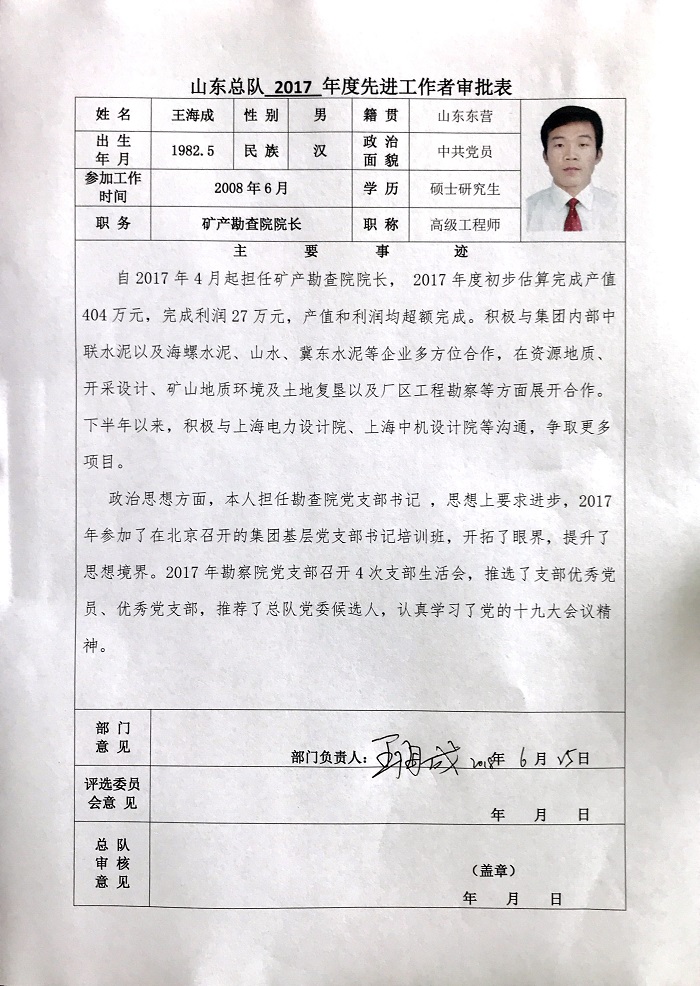 山东总队 2017 年度先进工作者审批表
姓 名 王海成 性 别 男 籍 贯 山东东营
出 生 年 月 1982.5 民 族 汉 政 治 面 貌 中共党员
参加工作时间 2008 年 6 月 学 历 硕士研究生
职 务 矿产勘查院院长 职 称 高级工程师
主 要 事 迹
自 2017 年 4 月起担任矿产勘查院院长， 2017 年度初步估算完成产值
404 万元，完成利润 27 万元，产值和利润均超额完成。积极与集团内部中
联水泥以及海螺水泥、山水、冀东水泥等企业多方位合作，在资源地质、
开采设计、矿山地质环境及土地复垦以及厂区工程勘察等方面展开合作。
下半年以来，积极与上海电力设计院、上海中机设计院等沟通，争取更多
项目。
政治思想方面，本人担任勘查院党支部书记 ，思想上要求进步，2017
年参加了在北京召开的集团基层党支部书记培训班，开拓了眼界，提升了
思想境界。2017 年勘察院党支部召开 4 次支部生活会，推选了支部优秀党
员、优秀党支部，推荐了总队党委候选人，认真学习了党的十九大会议精
神。
部 门
意 见
部门负责人：王海成 2018年 6 月 15日
评选委员
会意 见
年 月 日
总 队
审 核
意 见
（盖章）
年 月 日